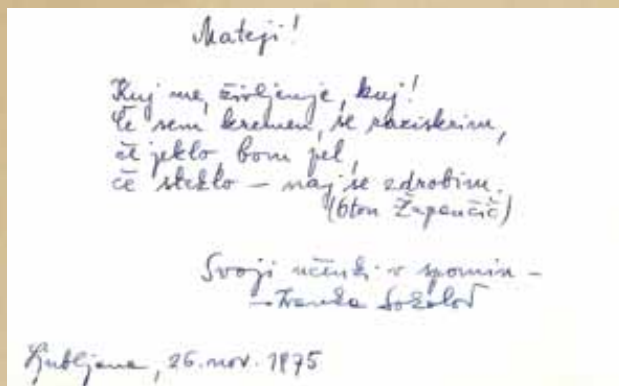 Mateji!
Kuj me, življenje, kuj!
Če sem kremen, se raziskrim,
če jeklo, bom pel,
če steklo – naj se zdrobim.
(Oton Župančič)
Svoji učenki v spomin –
Sokolov
Ljubljana, 26. nov. 1975